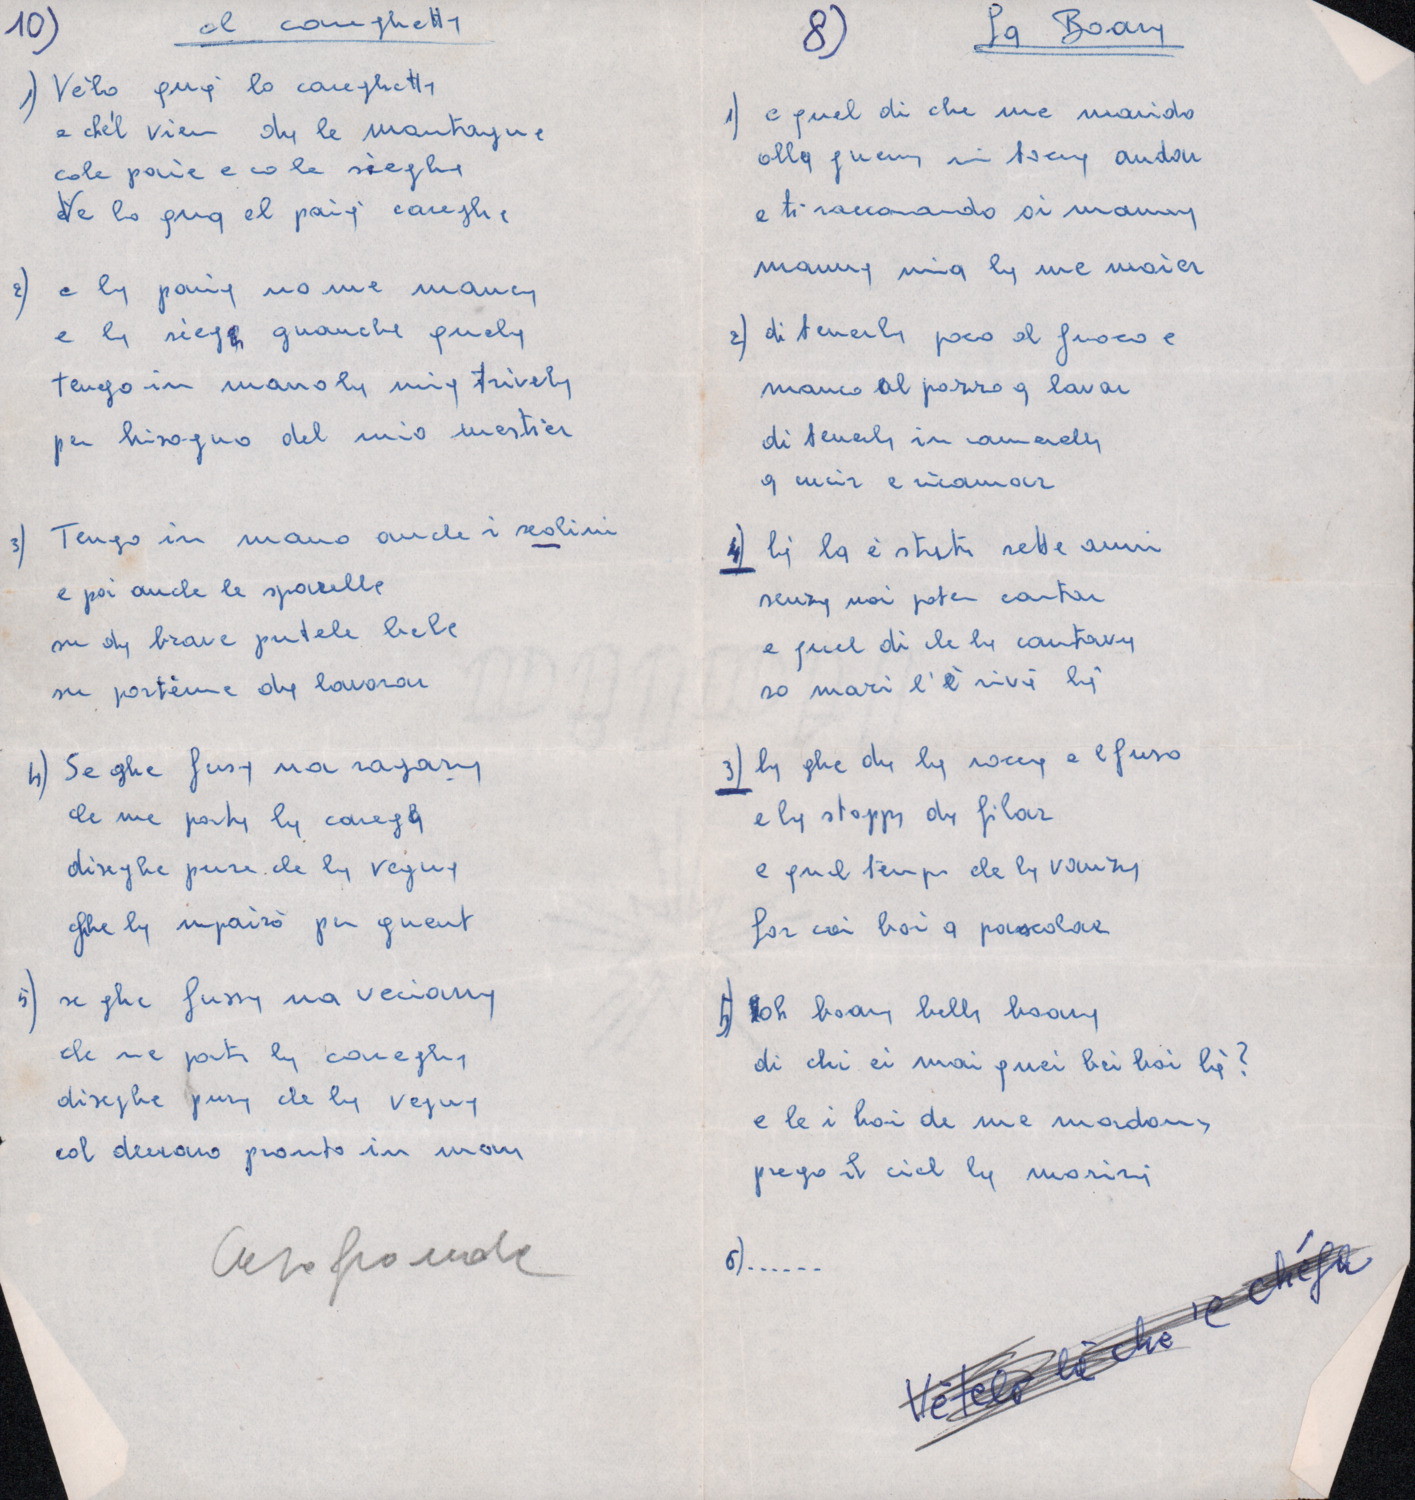 10) el careghetta
1) Vèlo quà lo careghetta
e chél vien da le montagne
cole paie e co le sieghe
Ve lo qua el paia careghe
2) e la paia no me manca
e la siega gnanche quela
tengo in mano la mia trivela
per bisogno del mio mestier
3) Tengo in mano anche i scolini
e poi anche le sparelle
su da brave putele bele
su portème da lavorar
4) Se ghe fusa na ragaza
che me porta la carega
diseghe pure che la vegna
che la mpairò per guent
5) se ghe fussa na veciana
che me porta la caregha
diseghe pura che la vegna
col denaro pronto in man
Cesa grande
8) La Boara
1) e quel di che me marido
alla guera mi toca andar
e ti raccomando oi mama
mama mia la me moier
2) di tenerla poco al fuoco e
manco al pozzo a lavar
di tenerla in camerella
a cucir e ricamar
4) là la è stata sette anni
senza mai poter cantar
e quel di che la cantava
so mari l'è rivà là
3) la ghe da la rocca e el fuso
e la stoppa da filar
e quel temp che la vanza
far coi boi a pascolar
5) oh boara bella boara
di chi ei mai quei bei boi là?
e le i boi de me madona
prega il ciel la morirà
6)......
Vètelo là che 'e chéfa